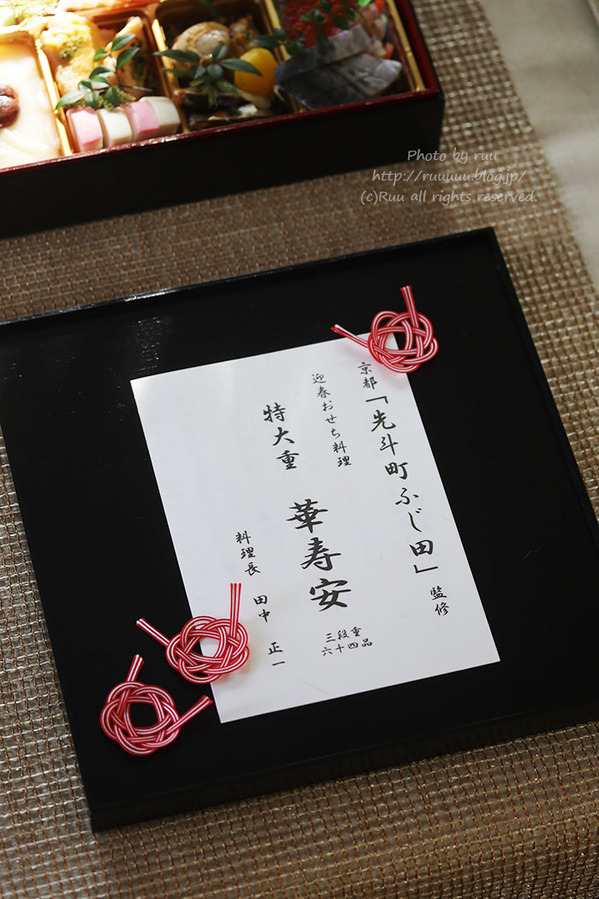 Photo by ruu
http://ruuuuu.blog.jp/
(c)Ruu all rights reserved.
京都「先斗町ふじ田」監修
迎春おせち料理
特大重 華寿安
三段重
六十四品
料理長 田中 正一